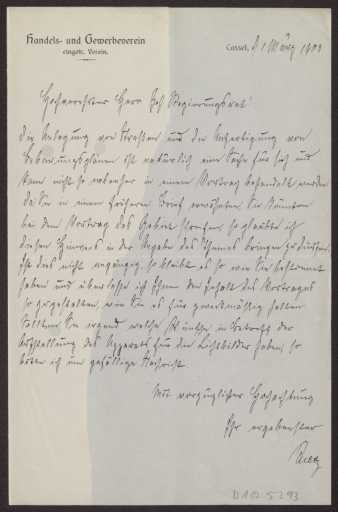 Handels- und Gewerbeverein
eingetr. Verein.
Cassel, d. 1 März 1903
Hochgeehrter Herr Geh Regierungsrat!
Die Anlegung von Straßen und die Anfertigung von
Bebauungsplänen ist natürlich eine Sache für sich und
kann nicht so nebenher in einem Vortrag behandelt werden
da Sie in einem früheren Brief erwähnten, Sie könnten
bei dem Vortrag das Gebiet streifen, so glaubte ich
diesen Hinweis in der Angabe des Themas bringen zu dürfen.
Ist das nicht angängig, so bleibt es so wie Sie bestimmt
haben und überlasse ich Ihnen den Inhalt des Vortrages
so zu gestalten, wie Sie es für zweckmäßig halten
Sollten Sie irgend welche Wünsche in Betreff der
Aufstellung des Apparats für die Lichtbilder haben, so
bitte ich um gefällige Nachricht.
Mit vorzüglicher Hochachtung
Ihr ergebenster
D 1 Q. 5. 293